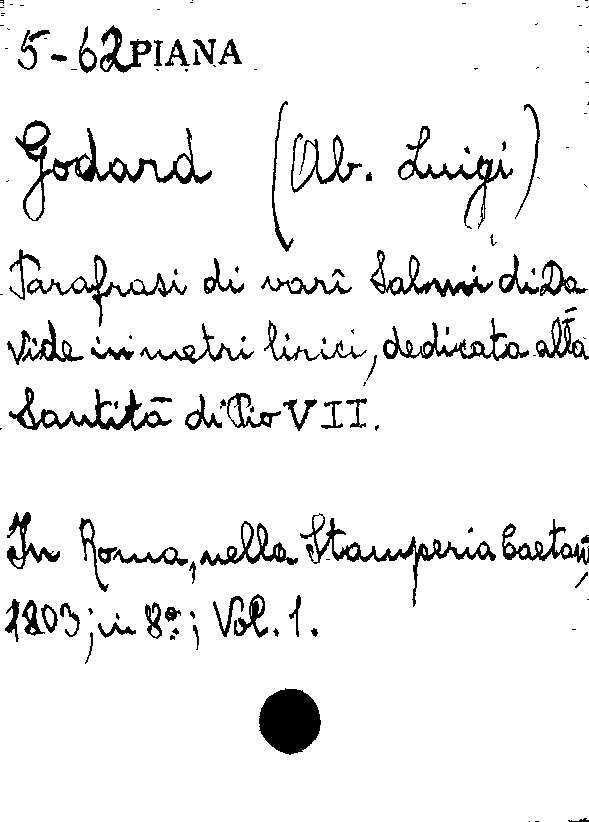 5-62 PIANA
Godard (Ab. Luigi)
Parafrasi di varî Salmi di Da
vide in metri lirici, dedicata alla
Santità di Pio VII.
In Roma, nella Stamperia Caetani,
1803; in 8º; Vol. 1.